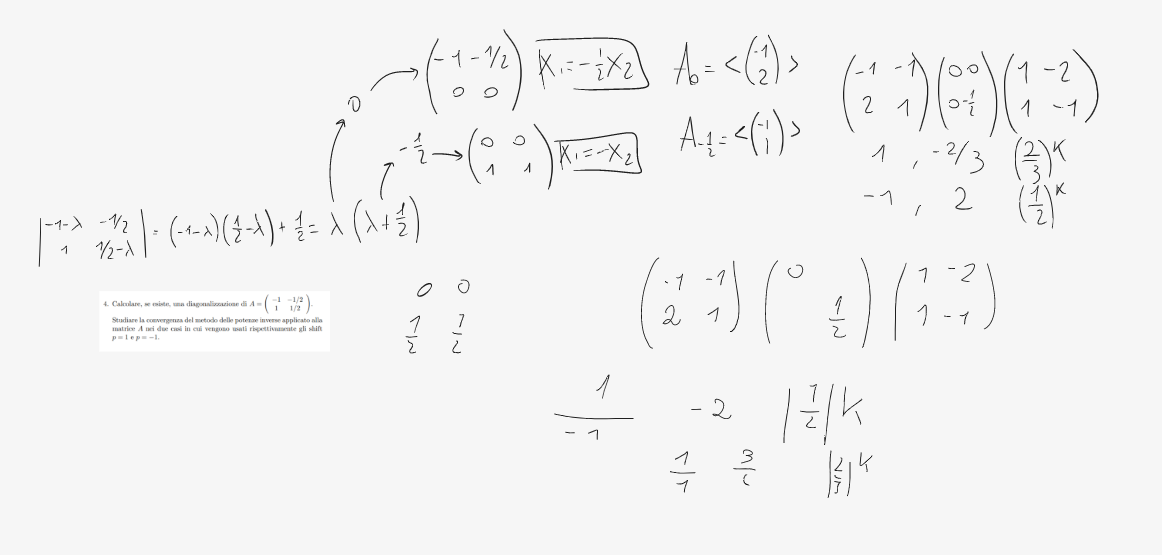 (-1 -1/2
0 0) X₁=-1/2X₂
A₀=<(-1
2)>
(-1 -1
2 1)(0 0
0 -1/2)(1 -2
1 -1)
0
-1/2 → (0 0
1 1) X₁=-X₂
A₋₁/₂=<(-1
1)>
1 , -2/3 (2/3)^K
-1 , 2 (1/2)^K
|-1-λ -1/2
1 1/2-λ| = (-1-λ)(1/2-λ)+1/2= λ(λ+1/2)
4. Calcolare, se esiste, una diagonalizzazione di A = (-1 -1/2
1 1/2).
Studiare la convergenza del metodo delle potenze inverse applicato alla
matrice A nei due casi in cui vengono usati rispettivamente gli shift
p = 1 e p = -1.
0 0
1/2 1/2
(-1 -1
2 1)(0
1/2)(1 -2
1 -1)
1/-1 -2 |1/2|K
1/1 |2/3|^K